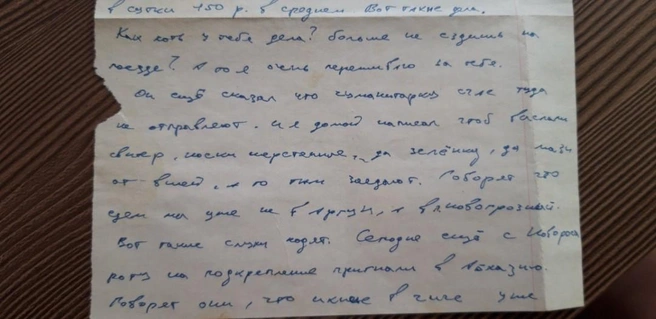 в сутки 150 р. в среднем Вот такие дела.
Как хоть у тебя дела? больше не ездишь на
поезде? А то я очень переживаю за тебя.
Он ещё сказал что гуманитарку туда
не отправляют. И я домой написал чтоб выслали
свитер, носки шерстяные, да зелёнку, да мази
от вшей, а то там заедают. Говорят что
едем мы уже не в Аргун, а в Новогрозный.
Вот такие слухи ходят. Сегодня ещё с Новорос
роту на подкрепление пригнали в Абхазию.
Говорят они, что их в уже